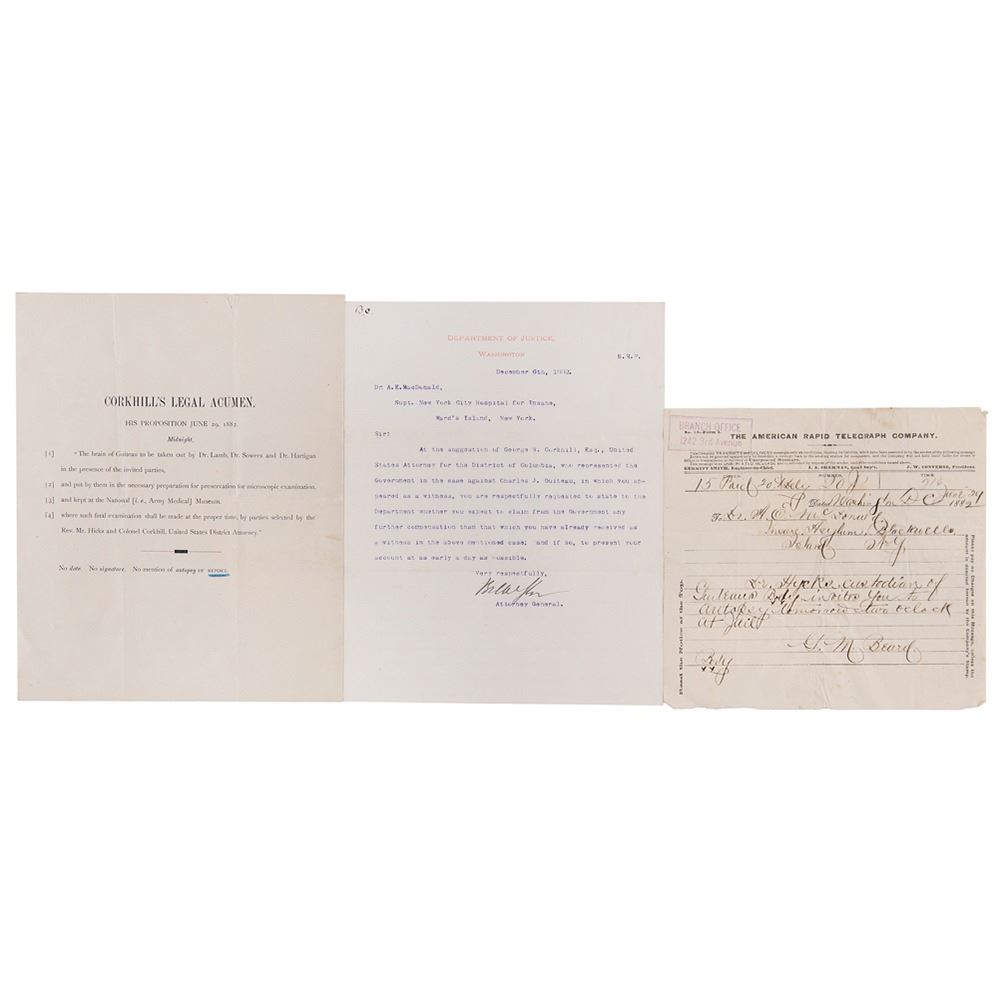 CORKHILL'S LEGAL ACUMEN.
HIS PROPOSITION JUNE 29, 1882.
Midnight.
[1] "The brain of Guiteau to be taken out by Dr. Lamb, Dr. Sowers and Dr. Hartigan
in the presence of the invited parties,
[2] and put by them in the necessary preparation for preservation for microscopic examination.
[3] and kept at the National [i. e., Army Medical] Museum.
[4] where such final examination shall be made at the proper time, by parties selected by the
Rev. Mr. Hicks and Colonel Corkhill, United States District Attorney."
No date. No signature. No mention of autopsy or REPORT.
DEPARTMENT OF JUSTICE,
WASHINGTON
December 6th, 1882.
Dr. A.E. MacDonald,
Supt. New York City Hospital for Insane,
Ward's Island, New York.
Sir:
At the suggestion of George B. Corkhill, Esq., United
States Attorney for the District of Columbia, who represented the
Government in the case against Charles J. Guiteau, in which you ap-
peared as a witness, you are respectfully requested to state to the
Department whether you expect to claim from the Government any
further compensation than that which you have already received as
a witness in the above mentioned case; and if so, to present your
account at as early a day as possible.
Very respectfully,
Attorney General.
BRANCH OFFICE
1242 3rd Avenue
THE AMERICAN RAPID TELEGRAPH COMPANY.
15 Paid
Dated Washington D C June 29 1882
To Dr. A. E. McDonald
Insane Asylum Blackwells
Island N Y
Dr. Hycks custodian of
Guiteaus Body invites you to
autopsy tomorrow two oclock
at jail
G. M. Beard
Read the Notice at the Top.